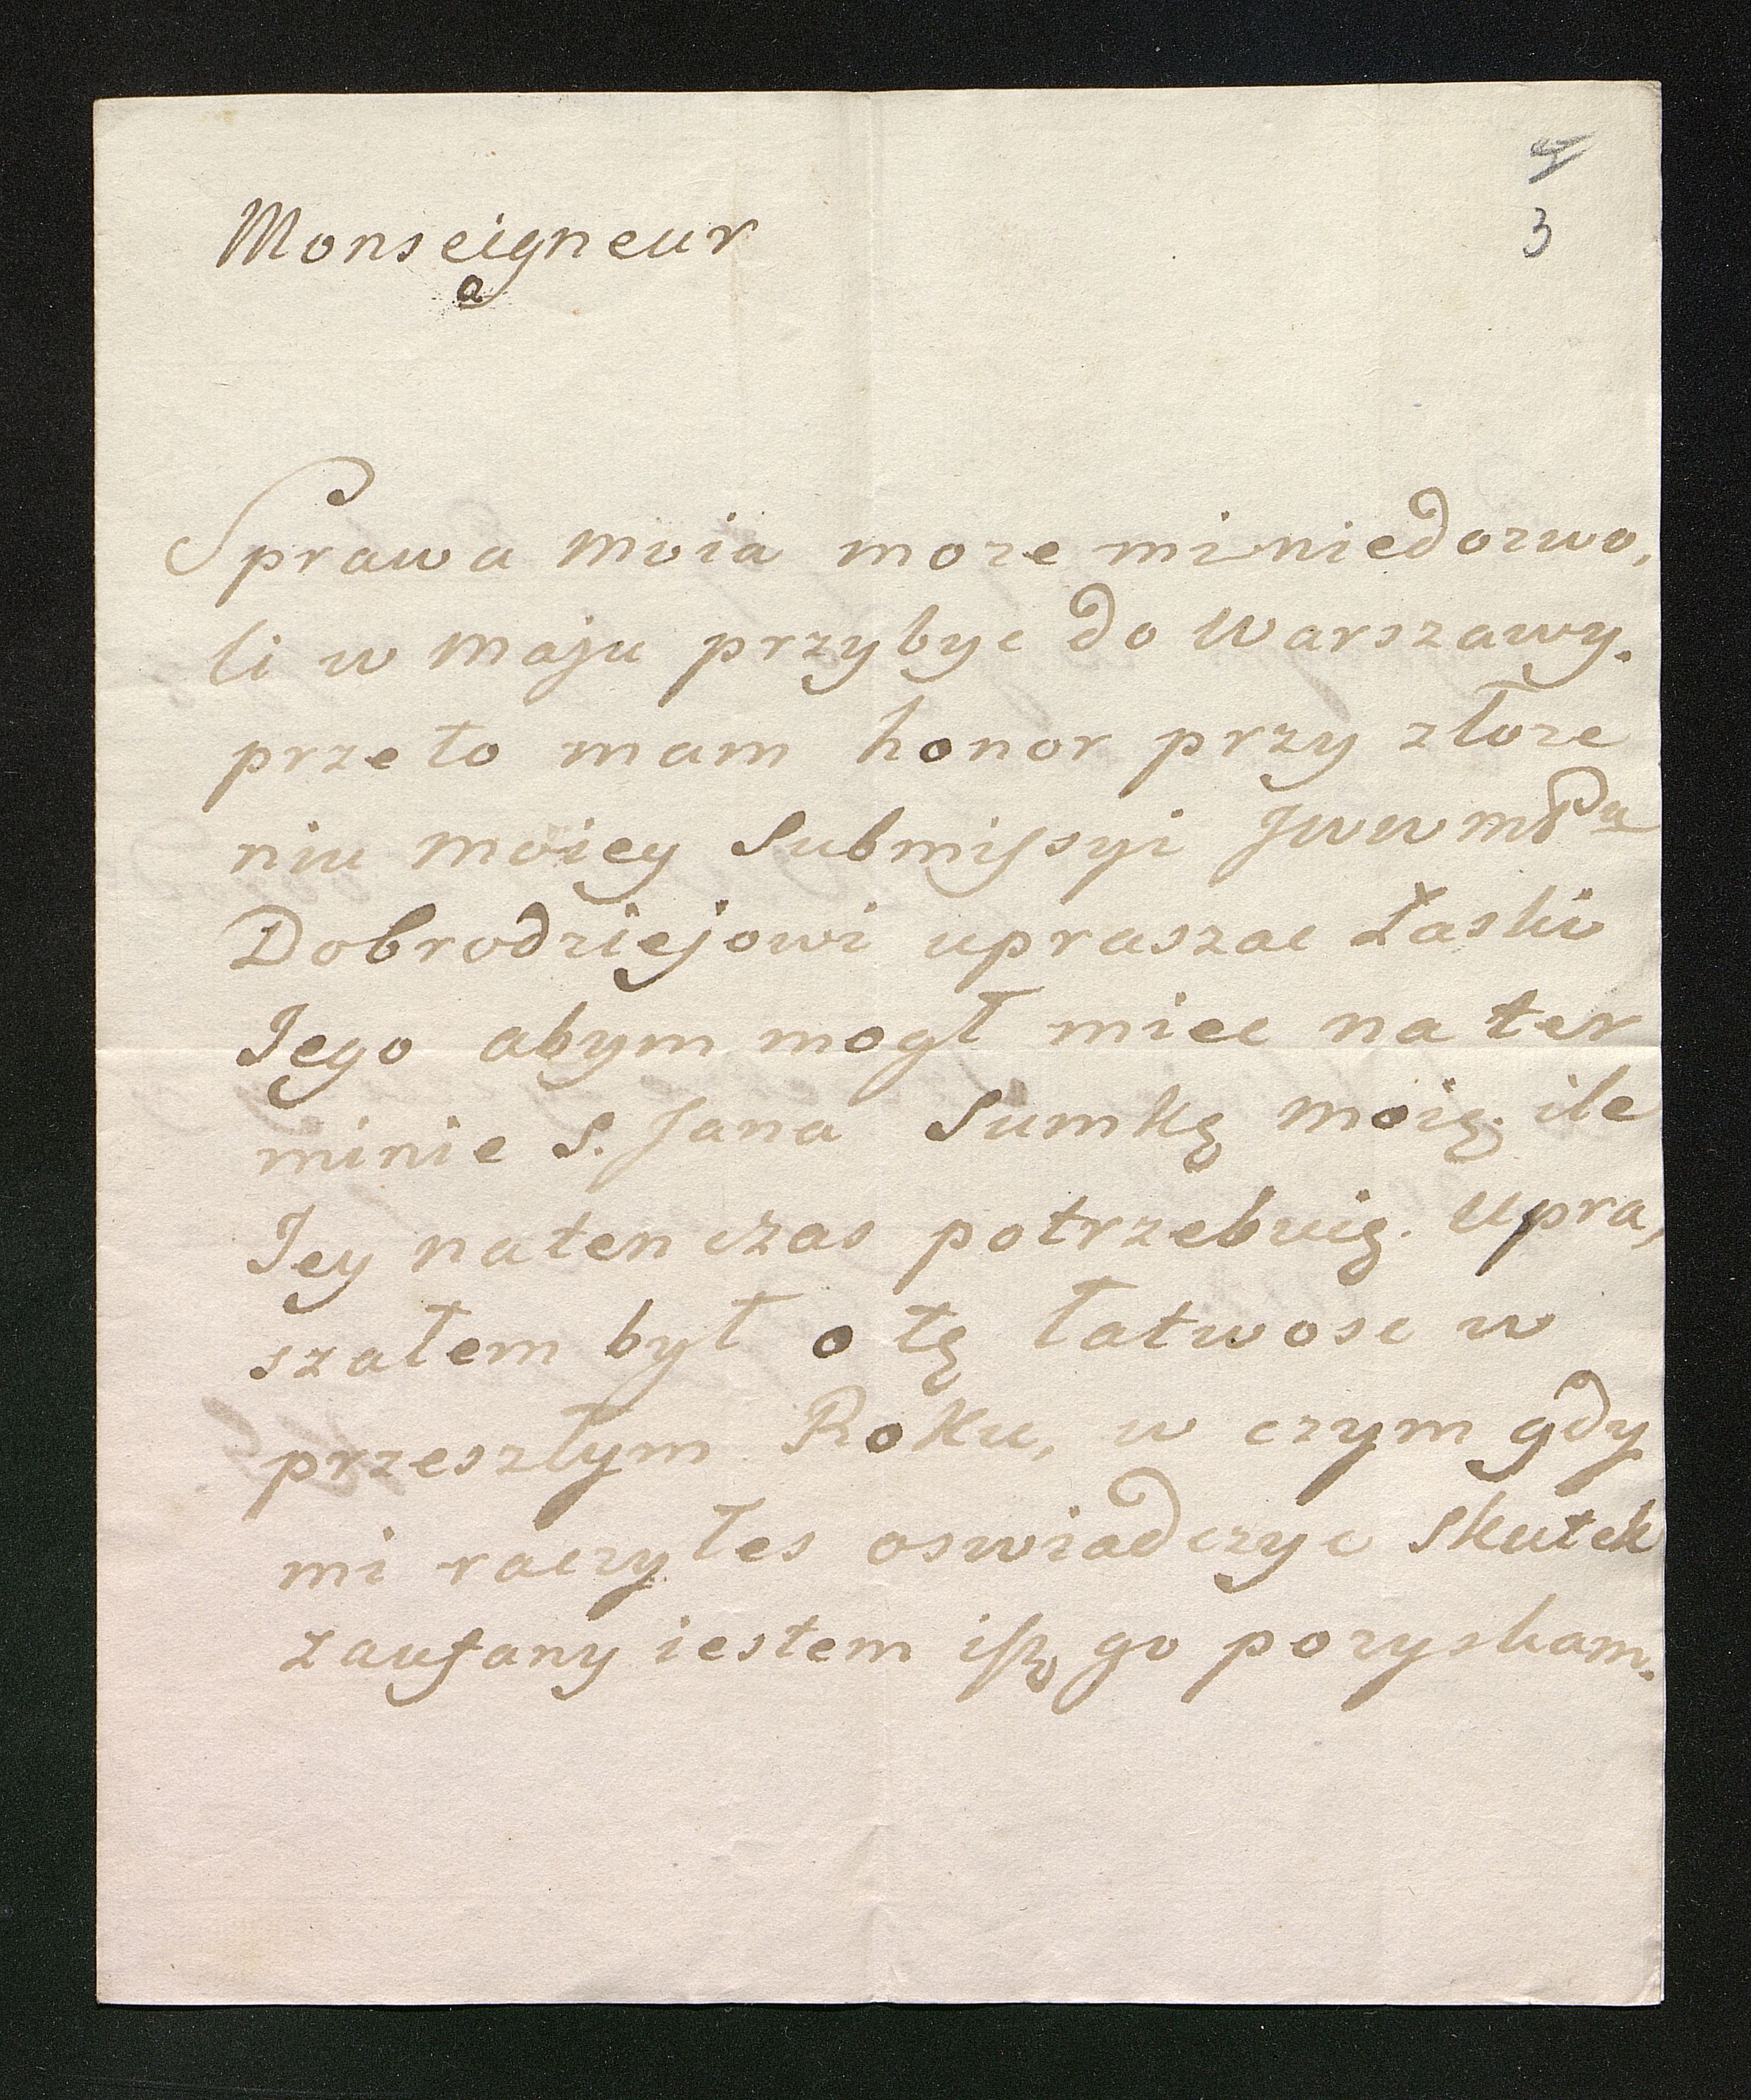 3
Monseigneur
Sprawa moia moze mi niedozwo,
li w maju przybyc do Warszawy.
przeto mam honor przy złoze
niu moiey Submissyi JWWmPu
Dobrodziejowi upraszac Łaski
Jego abym mogł miec na ter
minie S. Jana Sumkę moię; ile
Jey natenczas potrzebuię. Upra,
szałem był o tę łatwosc w
przeszłym Roku, w czym gdy
mi raczyłes oswiadczyc Skutek
zaufany iestem iſz go pozyskam.